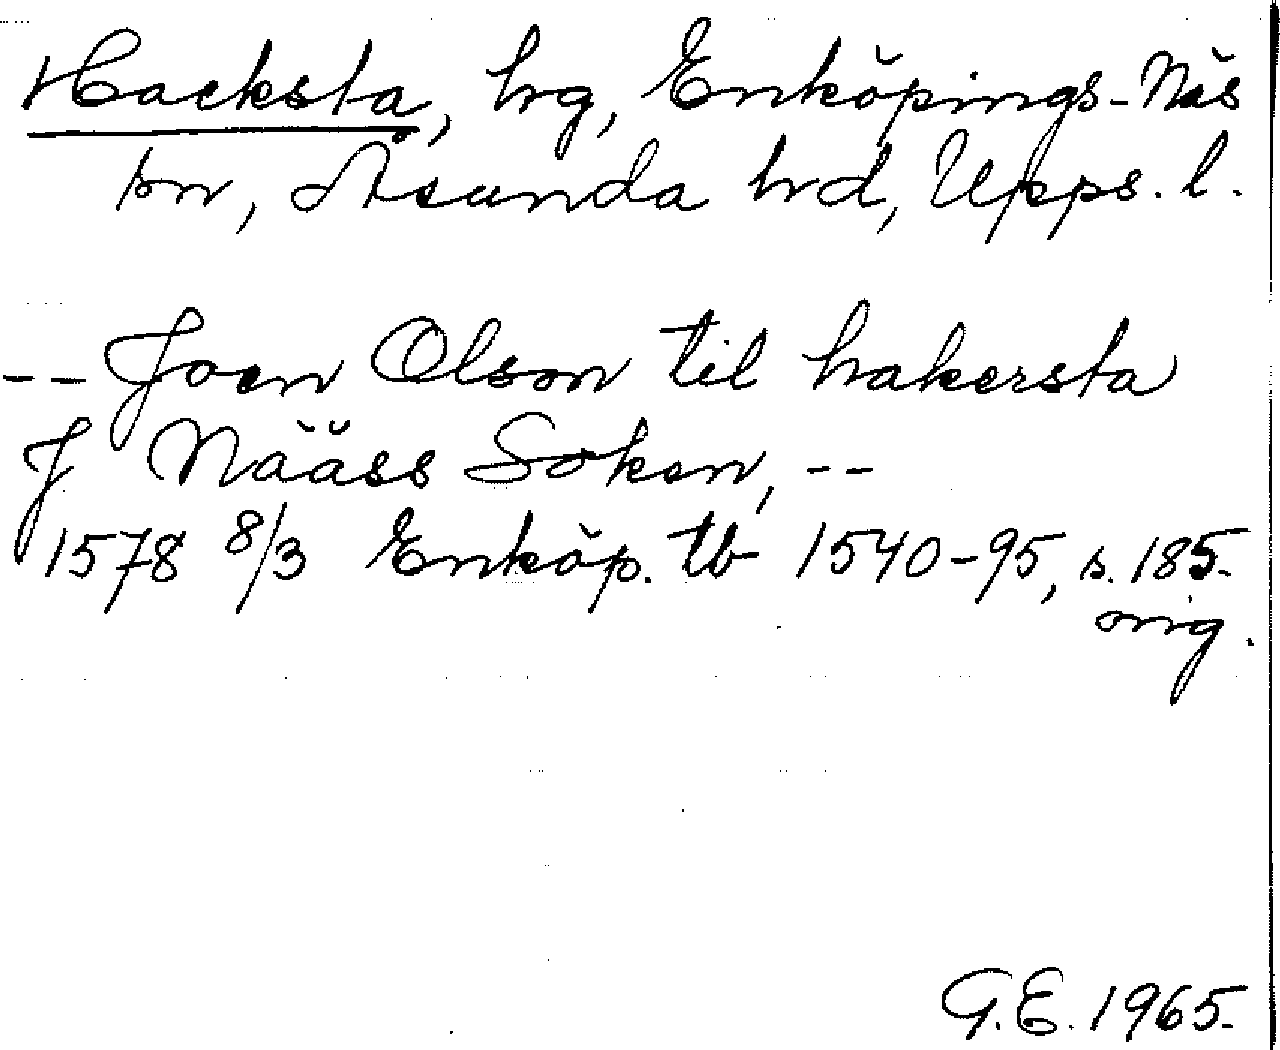 Hacksta, hrg, Enköpings-Näs
sn, Åsunda hrd, Upps. l.
-- Joen Olson til hakersta
J Nääss Soken, --
1578 8/3 Enköp. tb 1540-95, s. 185.
orig.
G.E. 1965.